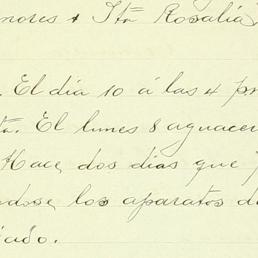 nores & Sta Rosalia,
. El día 10 á las 4 p.m
ta. El lunes 8 aguacer
Hace dos dias que
ndose los aparatos de
iado.